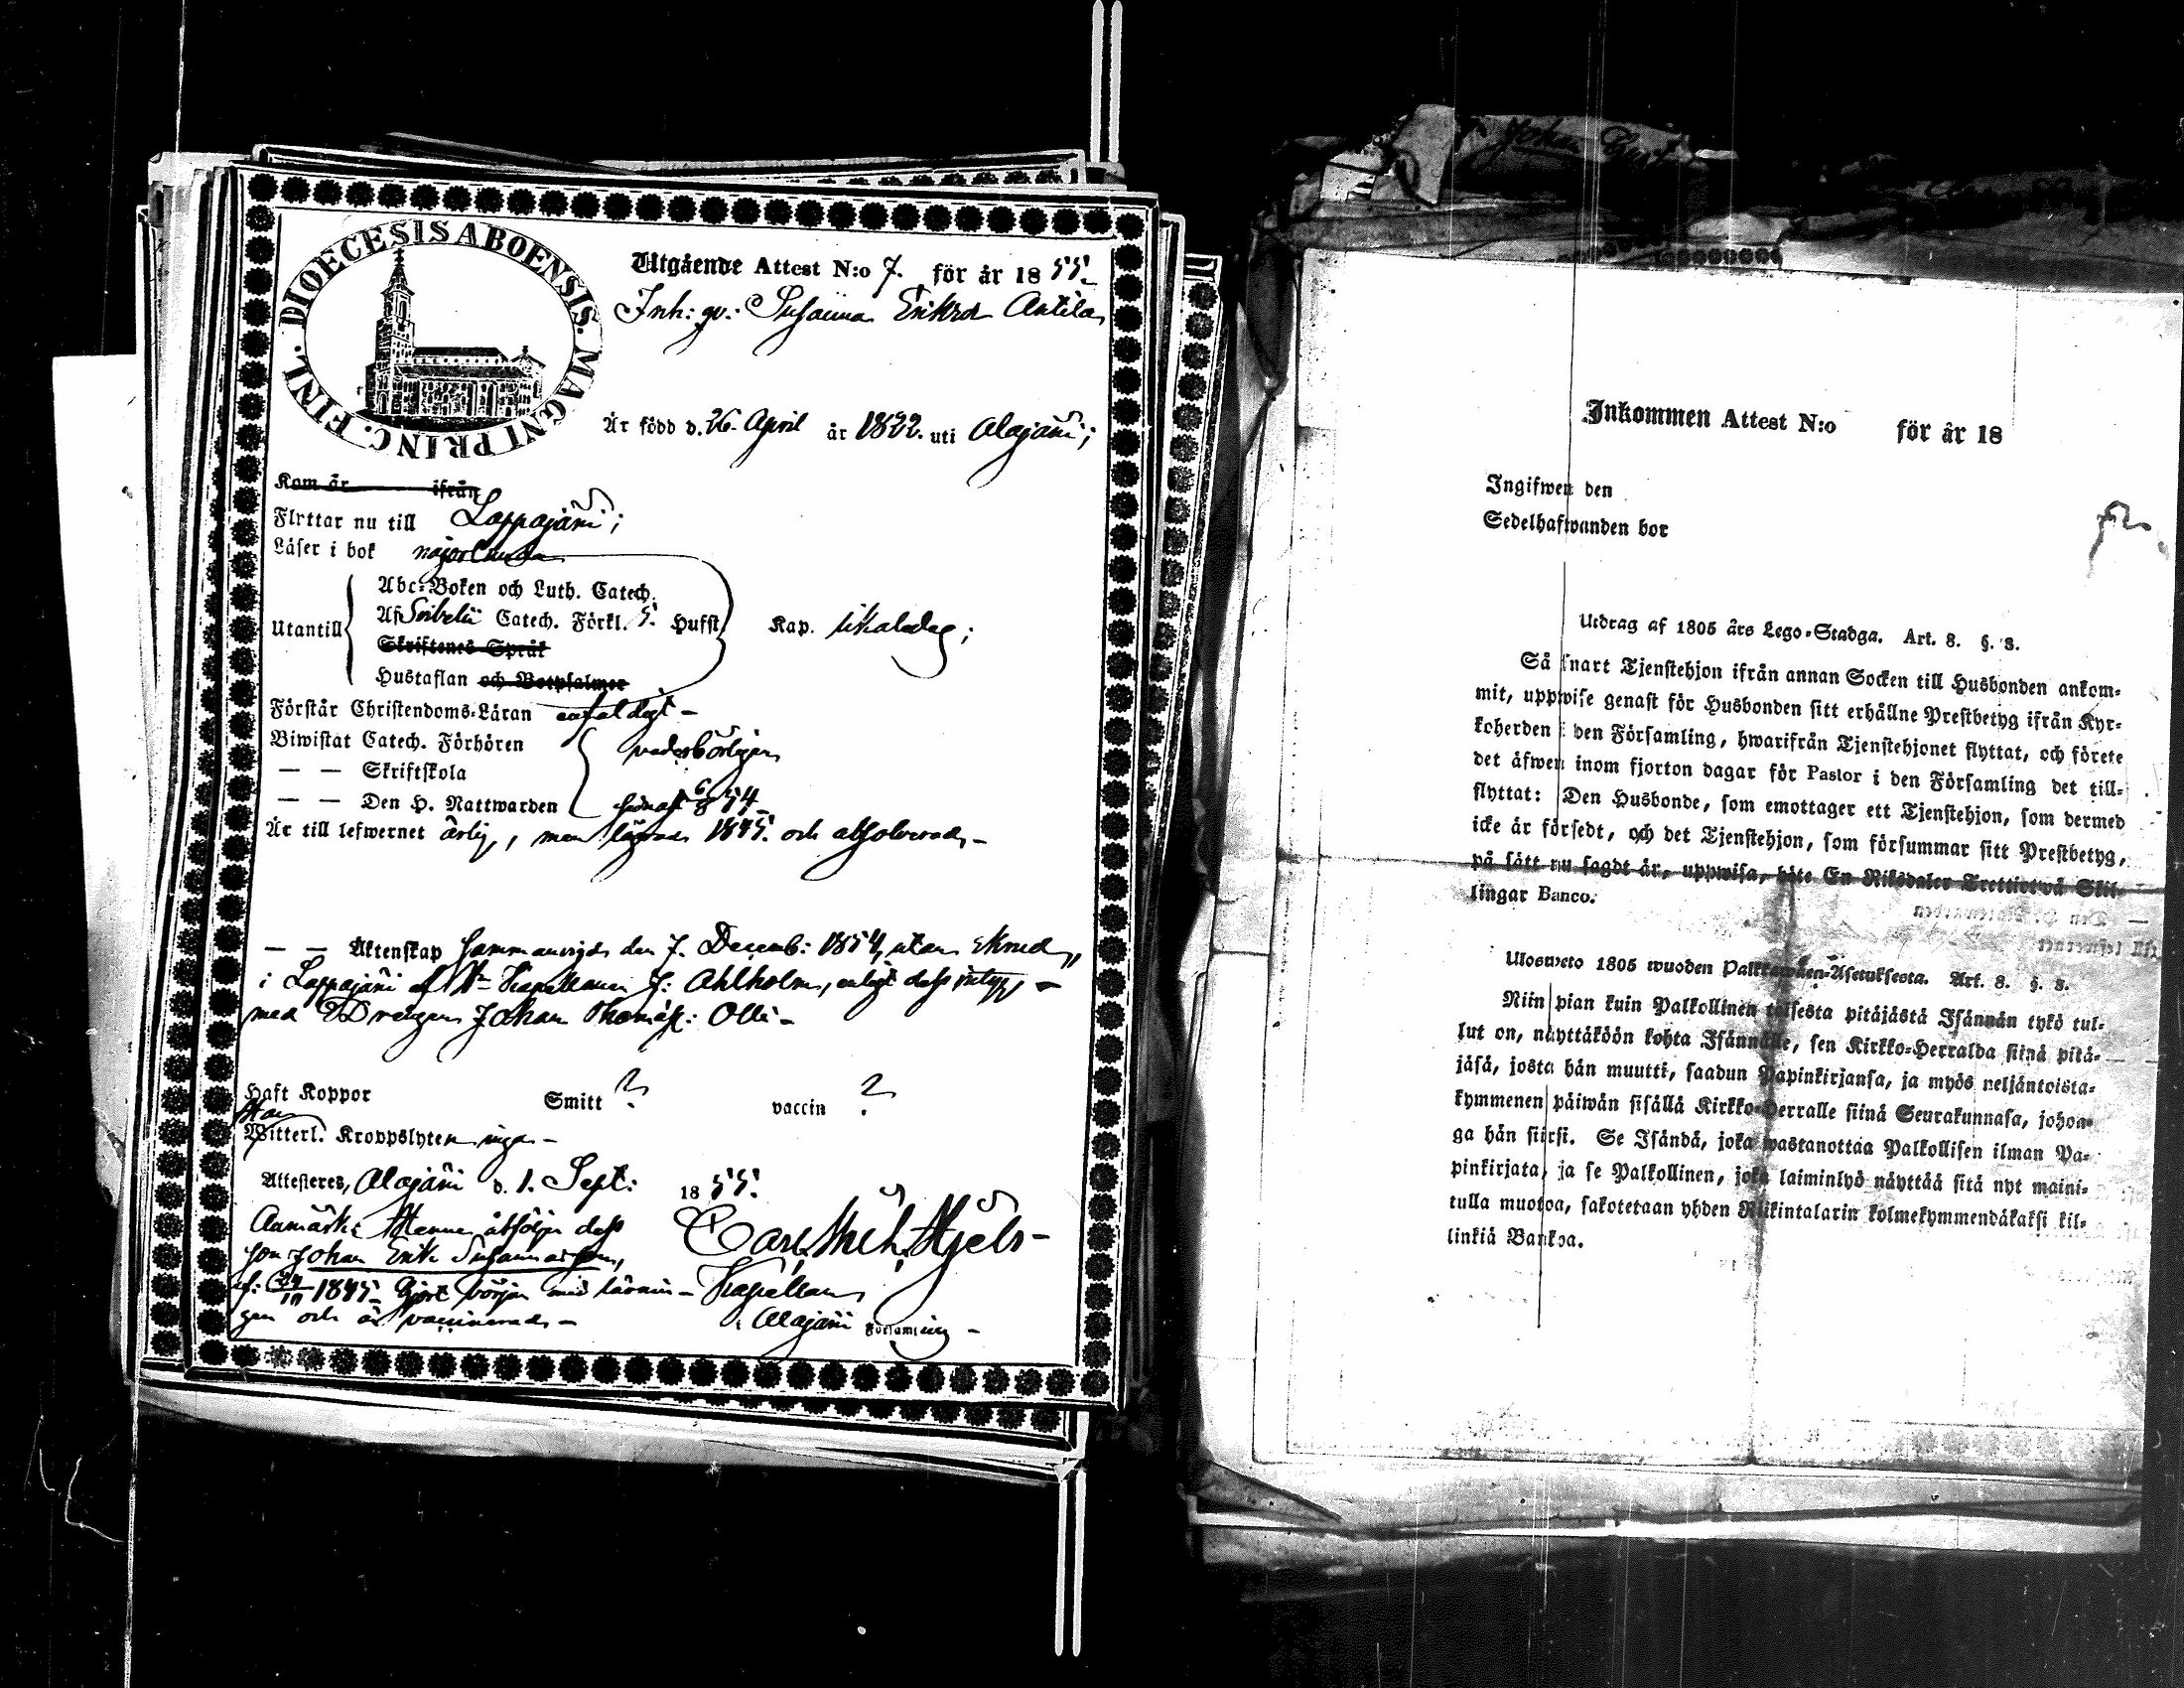 DIOECESIS ABOENSIS. MAGNI PRINC. FINL.
Utgående Attest N:o 7. för år 1855.
Inh: gv: Susanna Eriksd Antila
Är född d. 26 April år 1822. uti Alajärvi;
Kom år ifrån
Flyttar nu till Lappajärvi;
Läser i bok någorlunda
Utantill
Abc-Boken och Luth. Catech.
Af Svebelii Catech. Förkl. 5. Hufst.
Skriftenes Språk
Hustaflan och Botpsalmer
Kap. likaledes;
Förstår Christendoms-Läran enfaldigt -
Biwistat Catech. Förhören
— — Skriftskola
— — Den H. Nattwarden
vederbörligen
senast 54
Är till lefwernet ärlig, men 1845. och absolverad, -
— — Äktenskap Sammanvigd den 7. Decemb: 1854, utan
i Lappajärvi af Kapellanen J: Ahlholm, enligt dess intyg, -
med Drengen Johan Thomass: Olli -
Haft Koppor Smitt ? vaccin ?
Witterl. Kroppslyten inga -
Attesteres, Alajärvi d. 1. Sept: 1855.
Anmärk: Henne åtföljer dess
son Johan Erik Susannasson,
1845. Gjort början med läsnin-
gen och är vaccinerad -
Carl Mich. Hjelt -
Kapellan
i Alajärvi Församling -
Inkommen Attest N:o för år 18
Ingifwen den
Sedelhafwanden bor
Utdrag af 1805 års Lego-Stadga. Art. 8. §. 3.
Så snart Tjenstehjon ifrån annan Socken till Husbonden ankom-
mit, uppwise genast för Husbonden sitt erhållne Prestbetyg ifrån Kyr-
koherden i den Församling, hwarifrån Tjenstehjonet flyttat, och förete
det äfwen inom fjorton dagar för Pastor i den Församling det till-
flyttat: Den Husbonde, som emottager ett Tjenstehjon, som dermed
icke är försedt, och det Tjenstehjon, som försummar sitt Prestbetyg,
på sätt nu sagdt är, uppwisa, böte En Riksdaler Trettiotwå Skil-
lingar Banco.
Ulosweto 1805 wuoden Palkkawäen-Asetuksesta. Art. 8. §. 3.
Niin pian kuin Palkollinen toisesta pitäjästä Isännän tykö tul-
lut on, näyttäköön kohta Isännälle, sen Kirkko-Herralda siinä pitä-
jäsä, josta hän muutti, saadun Papinkirjansa, ja myös neljäntoista-
kymmenen päiwän sisällä Kirkko-Herralle siinä Seurakunnasa, johon-
ga hän siirsi. Se Isändä, joka wastanottaa Palkollisen ilman Pa-
pinkirjata, ja se Palkollinen, joka laiminlyö näyttää sitä nyt maini-
tulla muotoa, sakotetaan yhden Riikintalarin kolmekymmendäkaksi kil-
linkiä Bankoa.